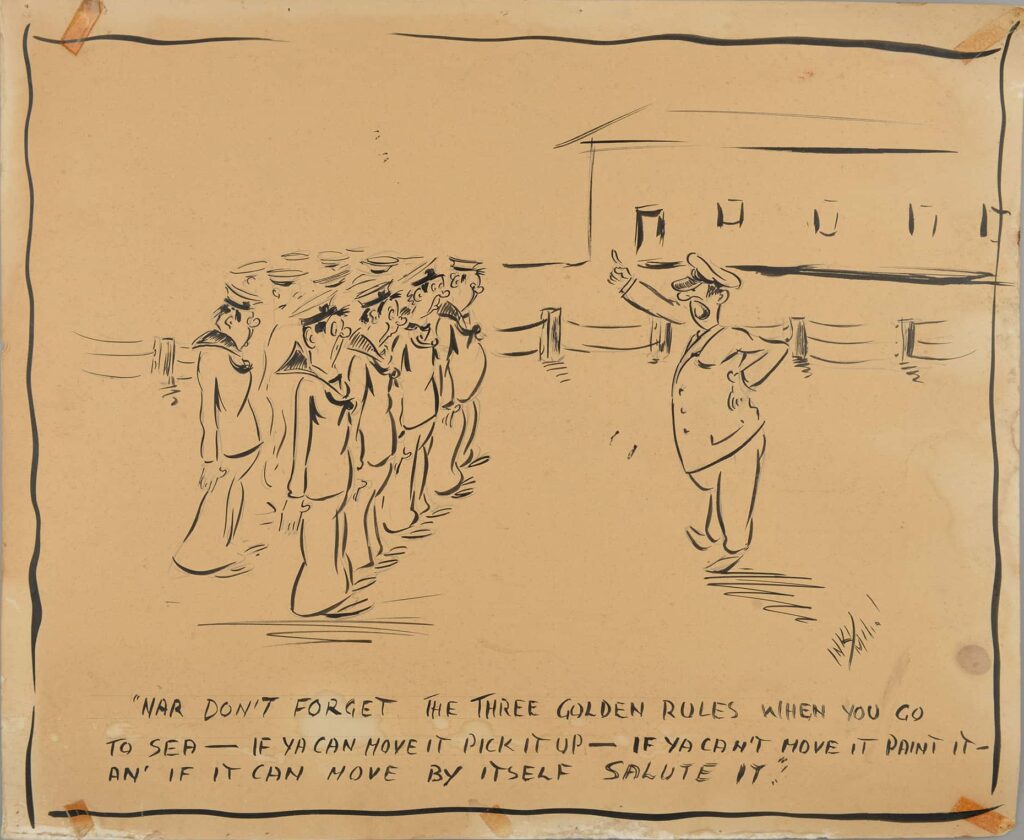 INKY
"NAR DON'T FORGET THE THREE GOLDEN RULES WHEN YOU GO
TO SEA — IF YA CAN MOVE IT PICK IT UP — IF YA CAN'T MOVE IT PAINT IT —
AN' IF IT CAN MOVE BY ITSELF SALUTE IT."